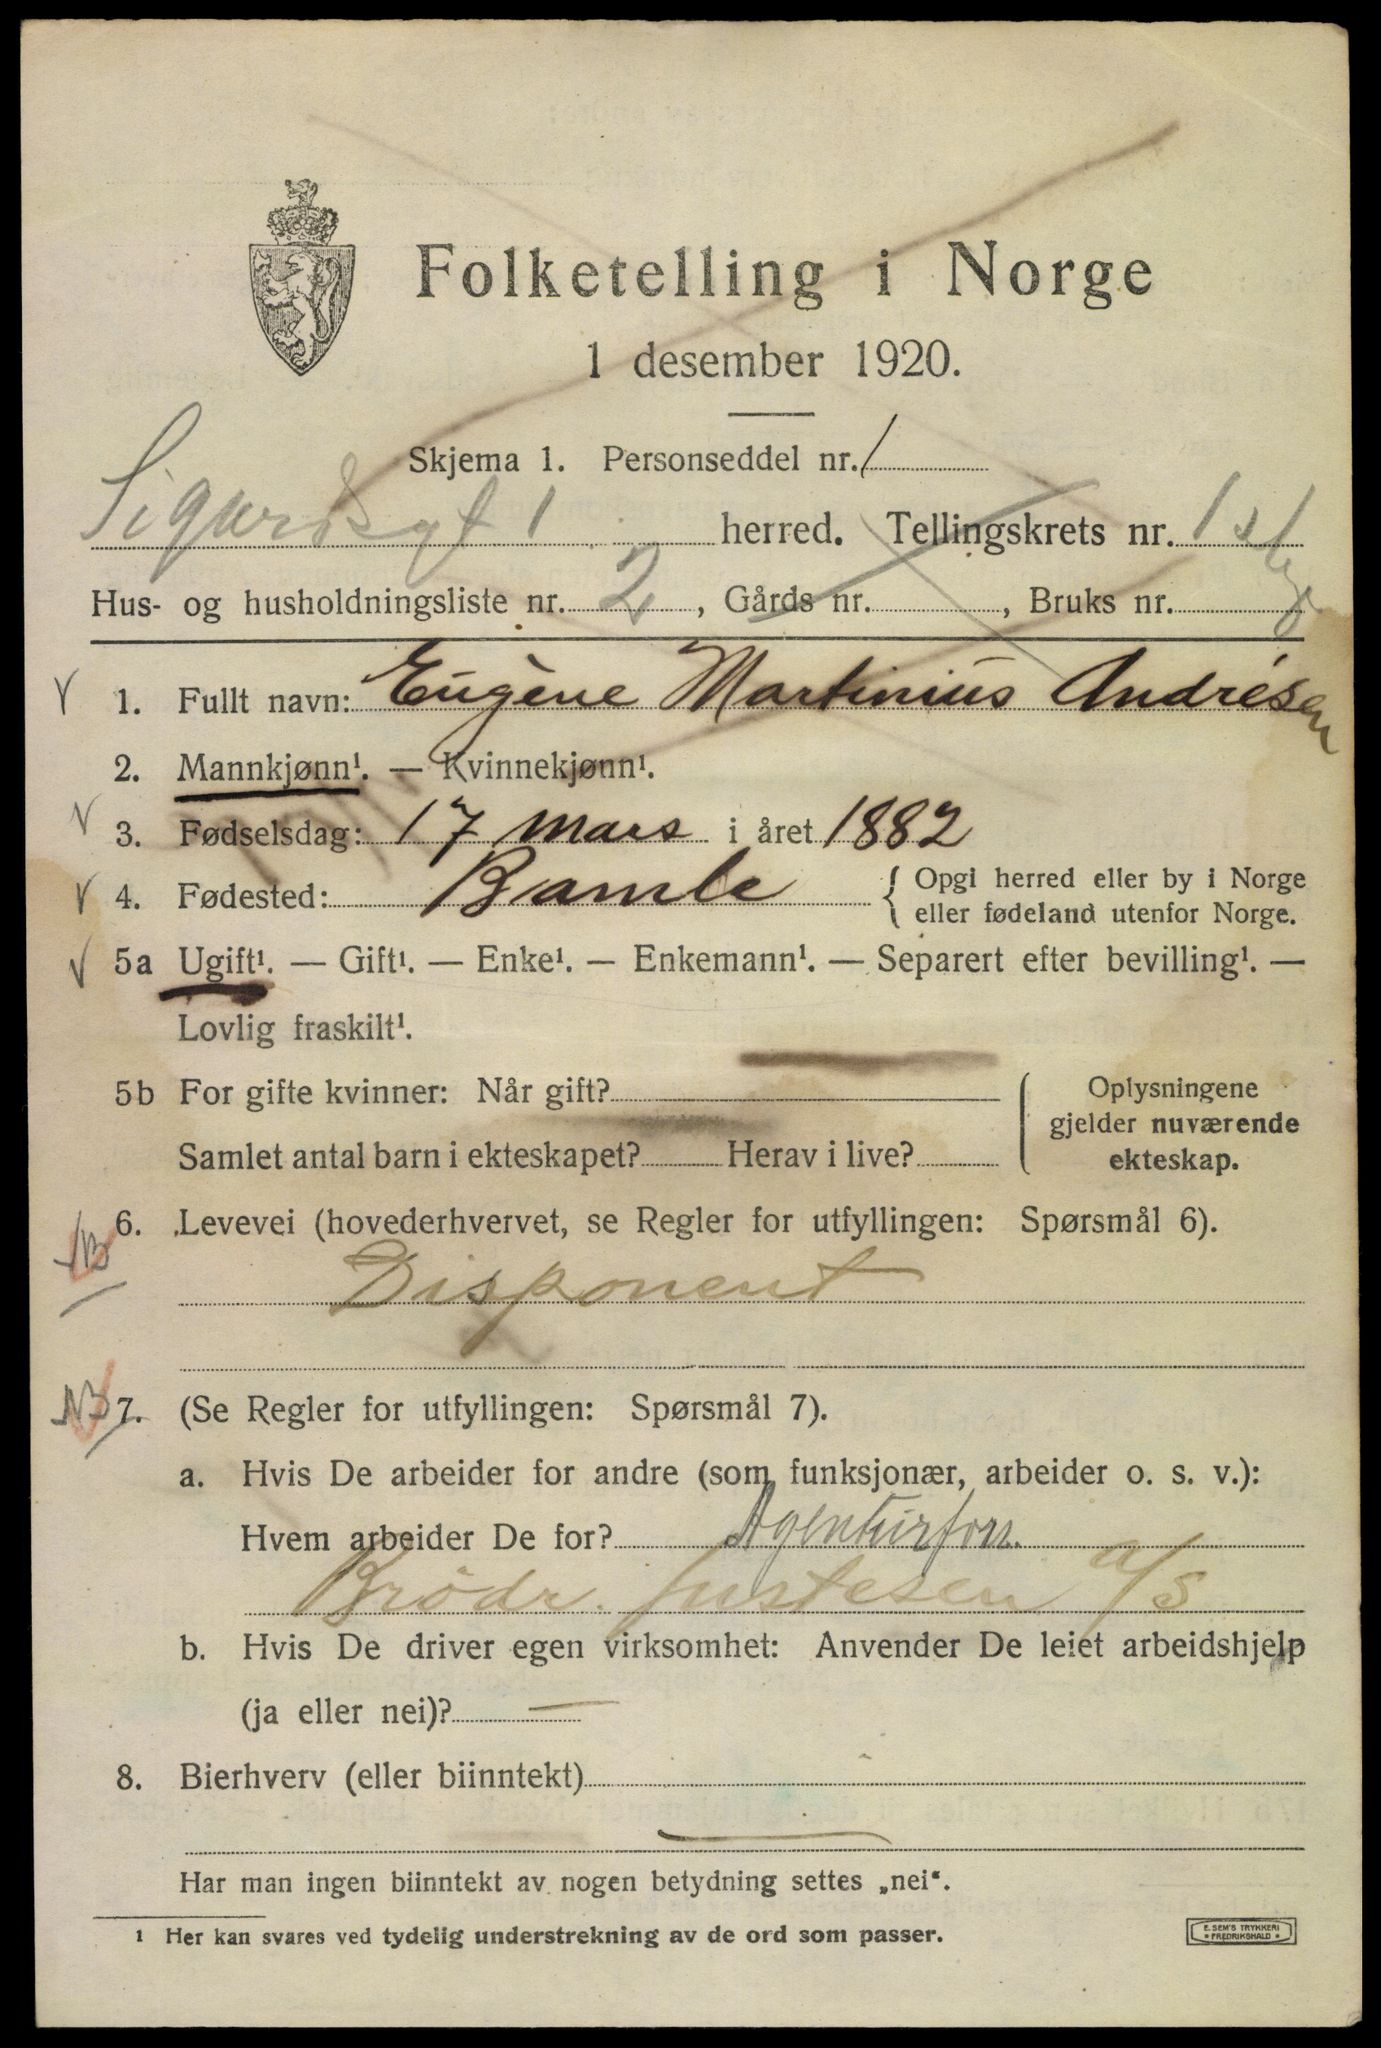 Folketelling i Norge
1 desember 1920.
Skjema 1. Personseddel nr. 1
Sigurdsgt 1 herred. Tellingskrets nr. 1 
Hus- og husholdningsliste nr. 2, Gårds nr. , Bruks nr.
1. Fullt navn: Eugène Martinius Andrésen
2. Mannkjønn¹. — Kvinnekjønn¹.
3. Fødselsdag: 17 mars i året 1882
4. Fødested: Bamle { Opgi herred eller by i Norge
eller fødeland utenfor Norge.
5a Ugift¹. — Gift¹. — Enke¹. — Enkemann¹. — Separert efter bevilling¹. —
Lovlig fraskilt¹.
5b For gifte kvinner: Når gift?
Samlet antal barn i ekteskapet? Herav i live?
Oplysningene
gjelder nuværende
ekteskap.
NB 6. Levevei (hovederhvervet, se Regler for utfyllingen: Spørsmål 6).
Disponent
NB 7. (Se Regler for utfyllingen: Spørsmål 7).
a. Hvis De arbeider for andre (som funksjonær, arbeider o. s. v.):
Hvem arbeider De for? Agenturforr.
Brödr. Justesen a/s
b. Hvis De driver egen virksomhet: Anvender De leiet arbeidshjelp
(ja eller nei)? —
8. Bierhverv (eller biinntekt)
—
Har man ingen biinntekt av nogen betydning settes „nei“.
1 Her kan svares ved tydelig understrekning av de ord som passer.
E. SEM'S TRYKKERI
* FREDRIKSHALD *